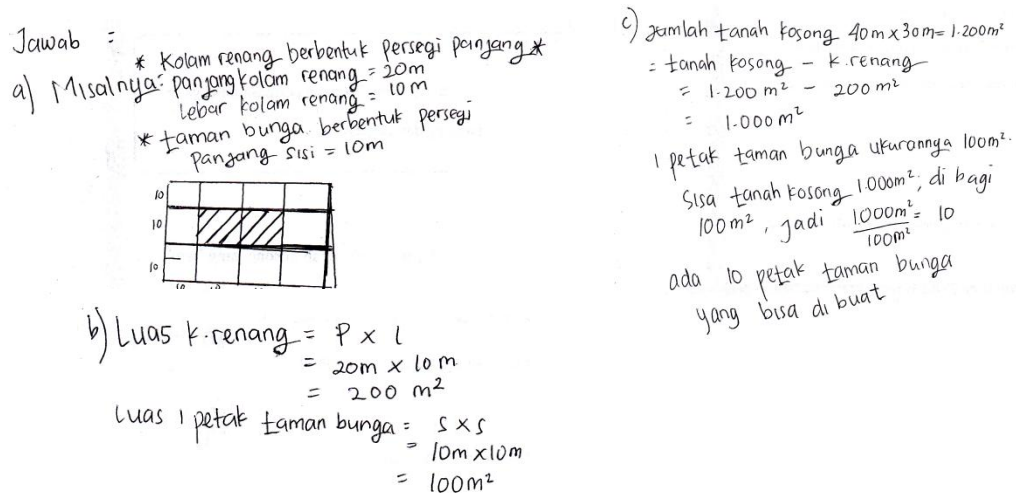 Jawab :
* Kolam renang berbentuk persegi panjang *
a) Misalnya: panjang kolam renang = 20m
lebar kolam renang = 10 m
* taman bunga berbentuk persegi
panjang sisi = 10m
10
10
10
10 10
b) Luas k.renang = P x l
= 20m x 10 m
= 200 m²
Luas 1 petak taman bunga = s x s
= 10m x 10m
= 100m²
c) Jumlah tanah kosong 40m x 30m = 1.200m²
= tanah kosong - k.renang
= 1.200 m² - 200 m²
= 1.000 m²
1 petak taman bunga ukurannya 100m².
Sisa tanah kosong 1.000m², di bagi
100m², jadi 1.000m²/100m² = 10
ada 10 petak taman bunga
yang bisa di buat